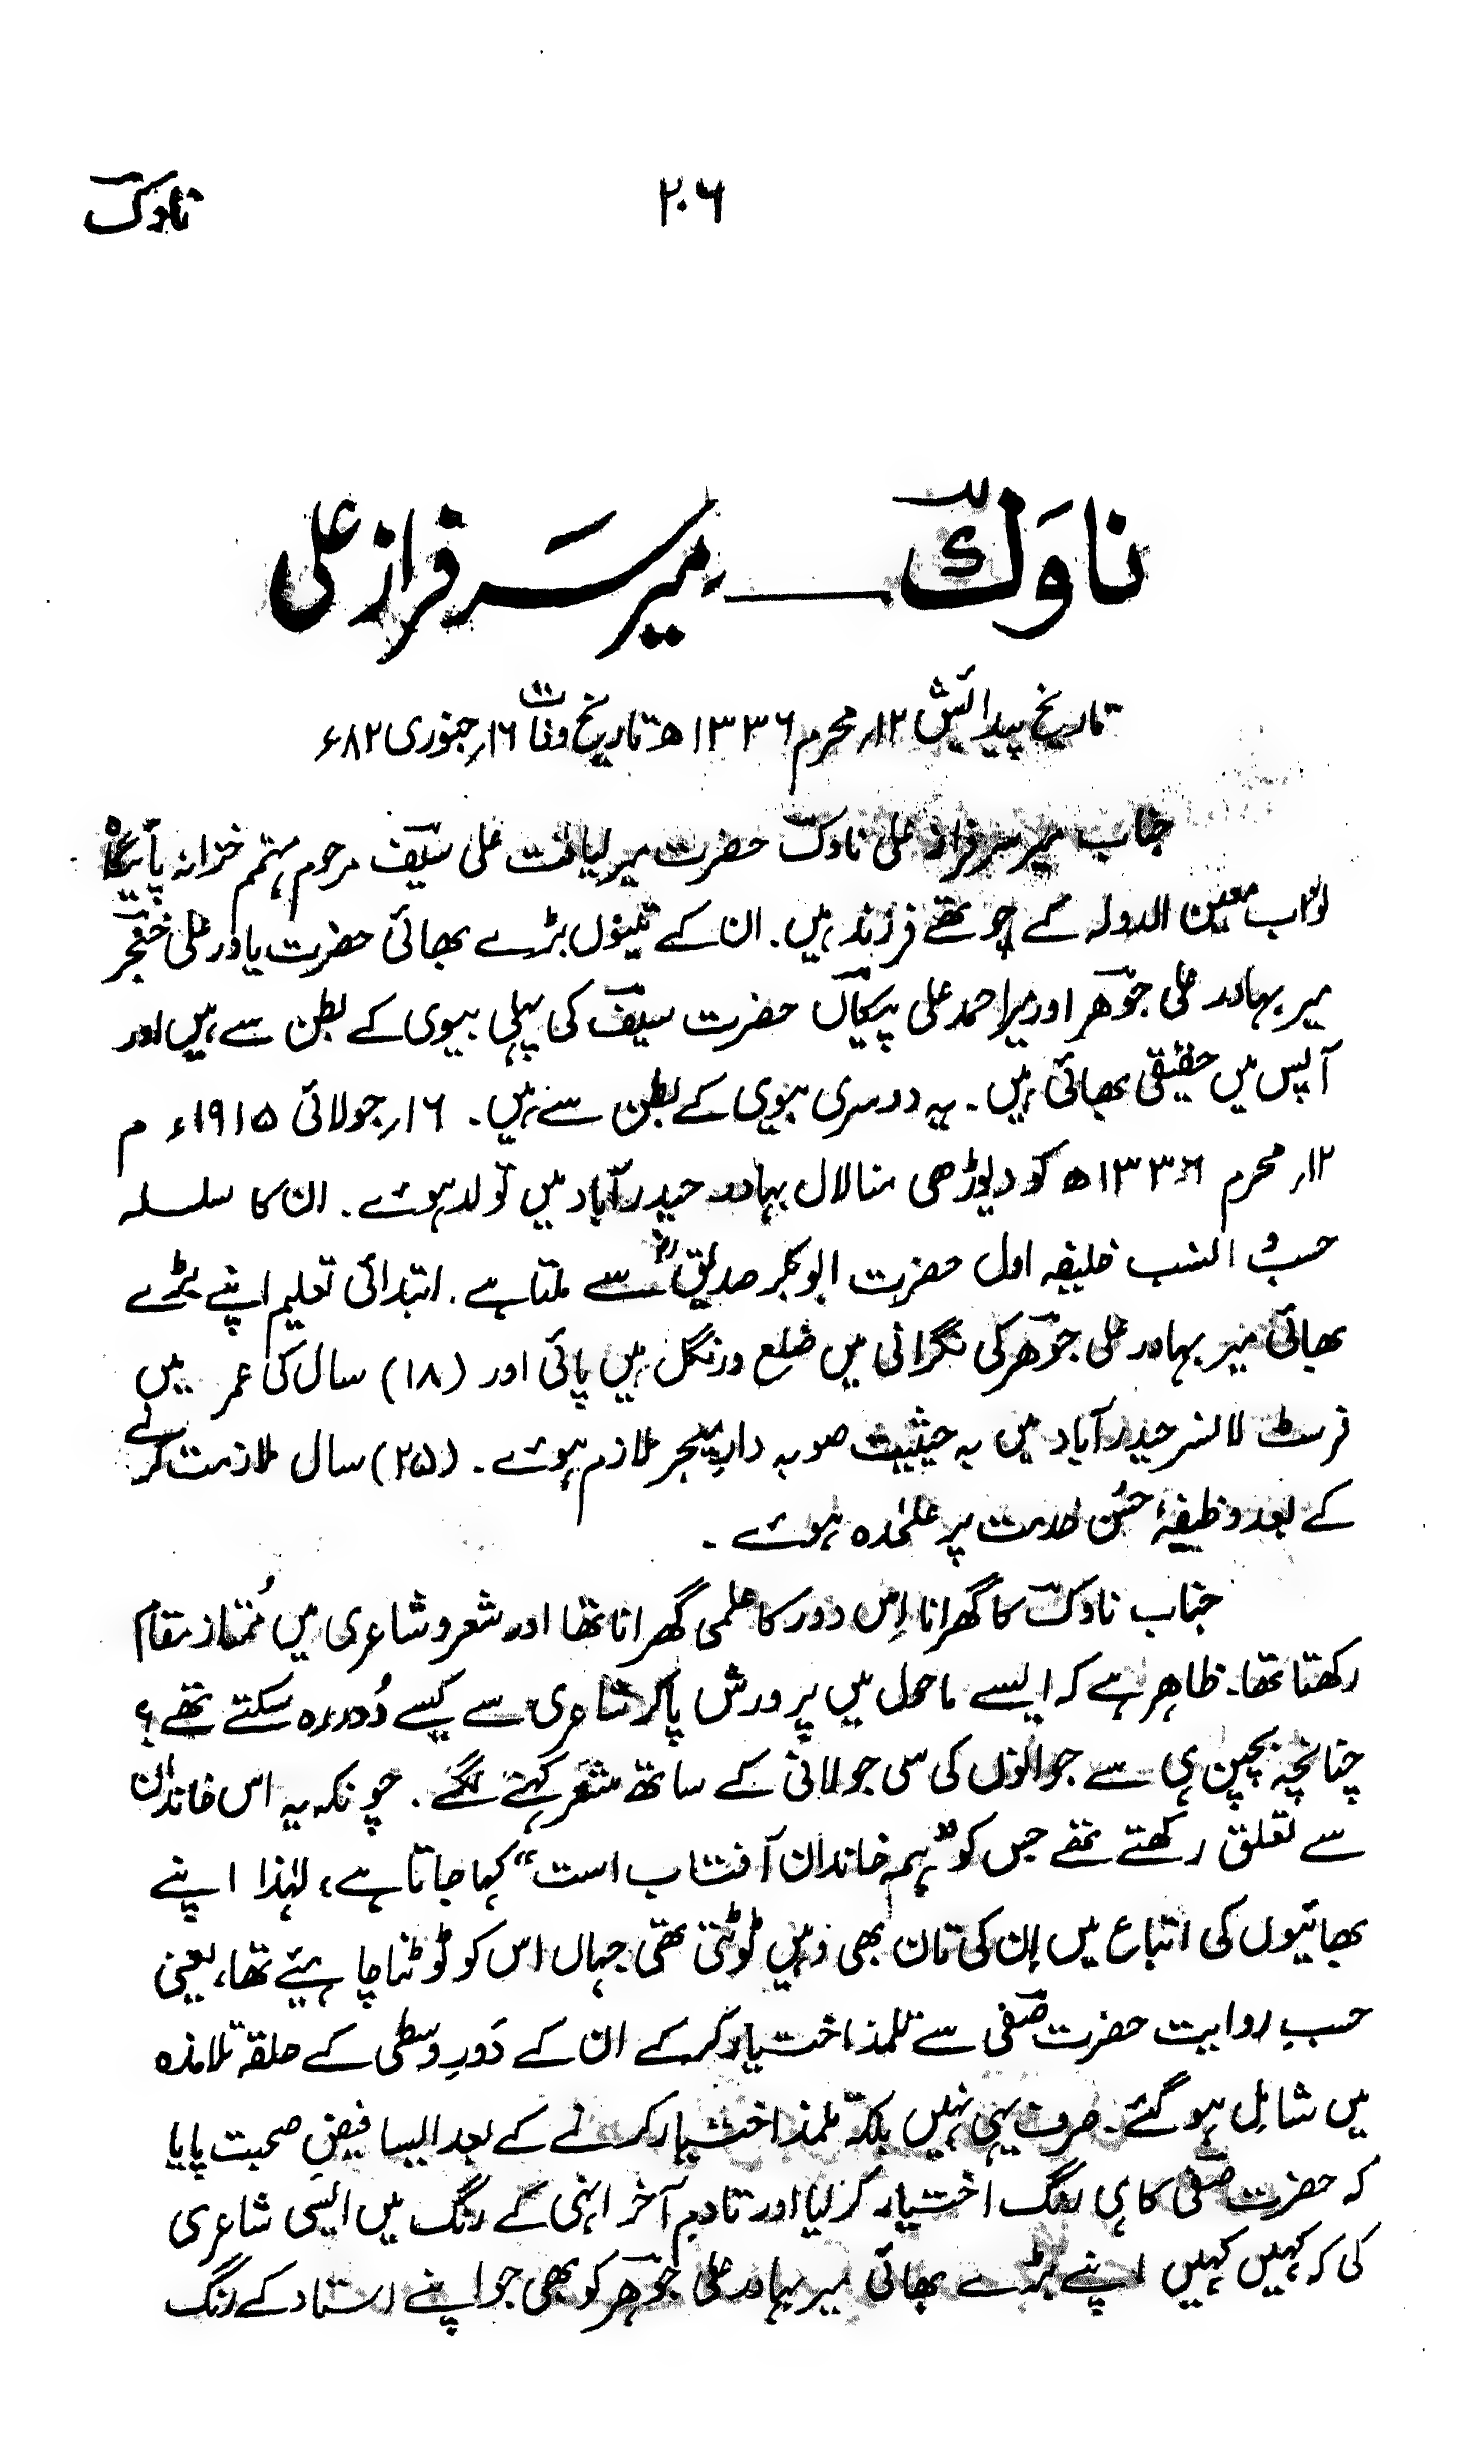 ناوکؔ
۲۰۶
ناوَکؔ ــــــ میر سَرفراز علی
تاریخ پیدائش ۱۲؍محرم ۱۳۳۶ھ تاریخ وفات ۱۶؍جنوری ۸۲ء
جناب میر سرفراز علی ناوکؔ حضرت میر لیاقت علی سیفؔ مرحوم مہتمم خزانہ پائیگاہ
نواب معین الدولہ کے چوتھے فرزند ہیں۔ ان کے تینوں بڑے بھائی حضرت یاور علی خنجرؔ
میر بہادر علی جوہرؔ اور میر احمد علی پیکاںؔ حضرت سیفؔ کی پہلی بیوی کے بطن سے ہیں اور
آپس میں حقیقی بھائی ہیں۔ یہ دوسری بیوی کے بطن سے ہیں۔ ۱۶؍جولائی ۱۹۱۵ء م
۱۲؍محرم ۱۳۳۶ھ کو دیوڑھی منالال بہادر حیدرآباد میں تولد ہوے۔ ان کا سلسلہ
حسب و النسب خلیفہ اول حضرت ابوبکر صدیقؓ سے ملتا ہے۔ ابتدائی تعلیم اپنے بڑے
بھائی میر بہادر علی جوہرؔ کی نگرانی میں ضلع ورنگل میں پائی اور (۱۸) سال کی عمر میں
فرسٹ لانسر حیدرآباد میں بہ حیثیت صوبہ دار میجر ملازم ہوے۔ (۲۵) سال ملازمت کرنے
کے بعد وظیفۂ حسُن خدمت پر علٰحدہ ہوے۔
جناب ناوکؔ کا گھرانا اِس دور کا علمی گھرانا تھا اور شعر و شاعری میں مُمتاز مقام
رکھتا تھا۔ ظاہر ہے کہ ایسے ماحول میں پرورش پاکر شاعری سے کیسے دُور رہ سکتے تھے؟
چنانچہ بچپن ہی سے جوانوں کی سی جولانی کے ساتھ شعر کہنے لگے۔ چونکہ یہ اس خاندان
سے تعلق رکھتے تھے جس کو ”ہمہ خاندان آفتاب است“ کہا جاتا ہے، لہٰذا اپنے
بھائیوں کی اتباع میں اِن کی تان بھی وہیں ٹوٹتی تھی جہاں اس کو ٹوٹنا چاہیئے تھا، یعنی
حسبِ روایت حضرت صفیؔ سے تلمذ اختیار کرکے ان کے دَورِ وسطیٰ کے حلقہ تلامذہ
میں شامل ہوگئے۔ صرف یہی نہیں بلکہ تلمذ اختیار کرنے کے بعد ایسا فیضِ صحبت پایا
کہ حضرت صفیؔ کا ہی رنگ اختیار کر لیا اور تادمِ آخر انہی کے رنگ میں ایسی شاعری
کی کہ کہیں کہیں اپنے بڑے بھائی میر بہادر علی جوہرؔ کو بھی جو اپنے استاد کے رنگ